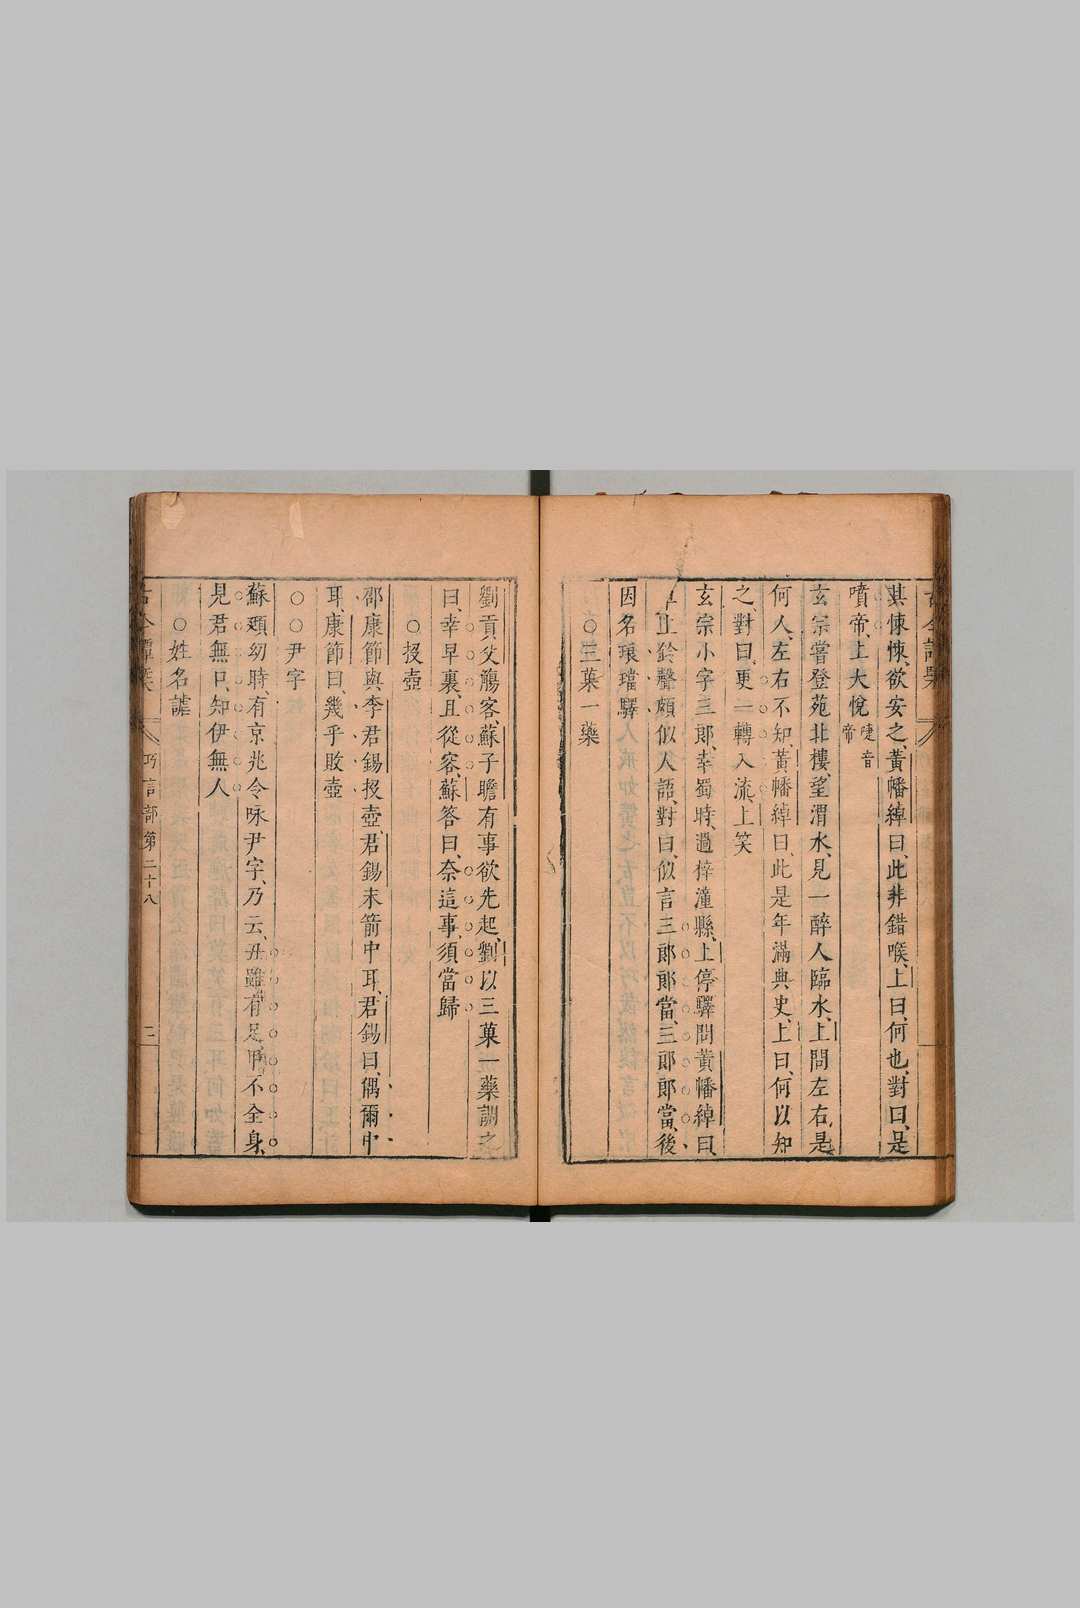 其悚悚、欲安之、黃幡綽曰、此非錯喉、上曰、何也、對曰、是
噴帝、上大悅 嚏音帝
玄宗嘗登苑北樓、望渭水、見一醉人臨水、上問左右、是
何人、左右不知、黃幡綽曰、此是年滿典史、上曰、何以知
之、對曰、更一轉入流、上笑
玄宗小字三郎、幸蜀時、過梓潼縣、上停驛問黃幡綽曰、
上鈴聲頗似人語、對曰、似言三郎郎當、三郎郎當、後
因名琅璫驛
○三菓一藥
劉貢父觴客、蘇子瞻有事欲先起、劉以三菓一藥調之
曰、幸早裏、且從容、蘇答曰、奈這事、須當歸
○投壺
邵康節與李君錫投壺、君錫末箭中耳、君錫曰、偶爾中
耳、康節曰、幾乎敗壺
○○尹字
蘇頲幼時、有京兆令咏尹字、乃云、丑雖有足、甲不全身、
見君無口、知伊無人
○姓名謔
古今譚槩 巧言部第二十八 二